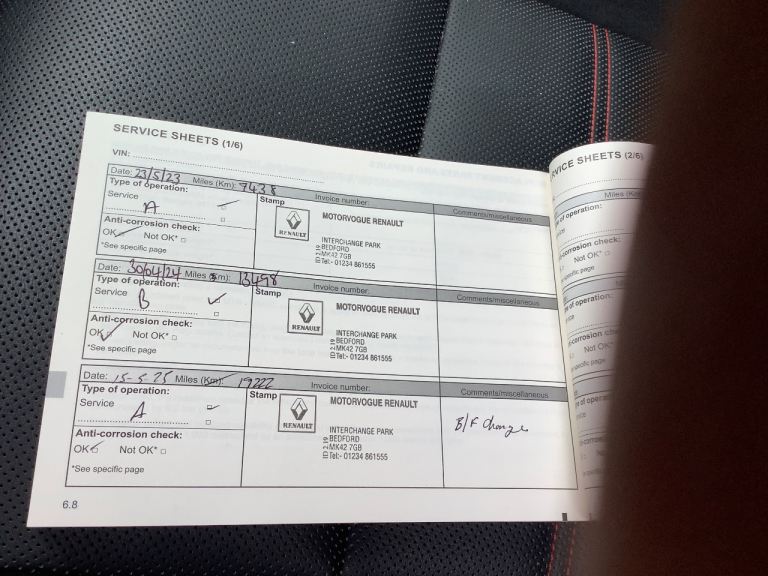 SERVICE SHEETS (1/6)
VIN:
Date: 23/5/23 Miles (Km): 7438 Invoice number:
Type of operation:
Service
A
Anti-corrosion check:
OK Not OK*
*See specific page
Stamp
RENAULT
MOTORVOGUE RENAULT
INTERCHANGE PARK
BEDFORD
MK42 7GB
Tel:- 01234 861555
Comments/miscellaneous
Date: 30/04/24 Miles (Km): 13498 Invoice number:
Type of operation:
Service
B
Anti-corrosion check:
OK Not OK*
*See specific page
Stamp
RENAULT
MOTORVOGUE RENAULT
INTERCHANGE PARK
BEDFORD
MK42 7GB
Tel:- 01234 861555
Comments/miscellaneous
Date: 15-5-25 Miles (Km): 19222 Invoice number:
Type of operation:
Service
A
Anti-corrosion check:
OK Not OK*
*See specific page
Stamp
RENAULT
MOTORVOGUE RENAULT
INTERCHANGE PARK
BEDFORD
MK42 7GB
Tel:- 01234 861555
Comments/miscellaneous
B/F change
6.8
SHEETS (2/6)
Miles
of operation:
check:
Not OK*
specific page
of operation:
Not OK*